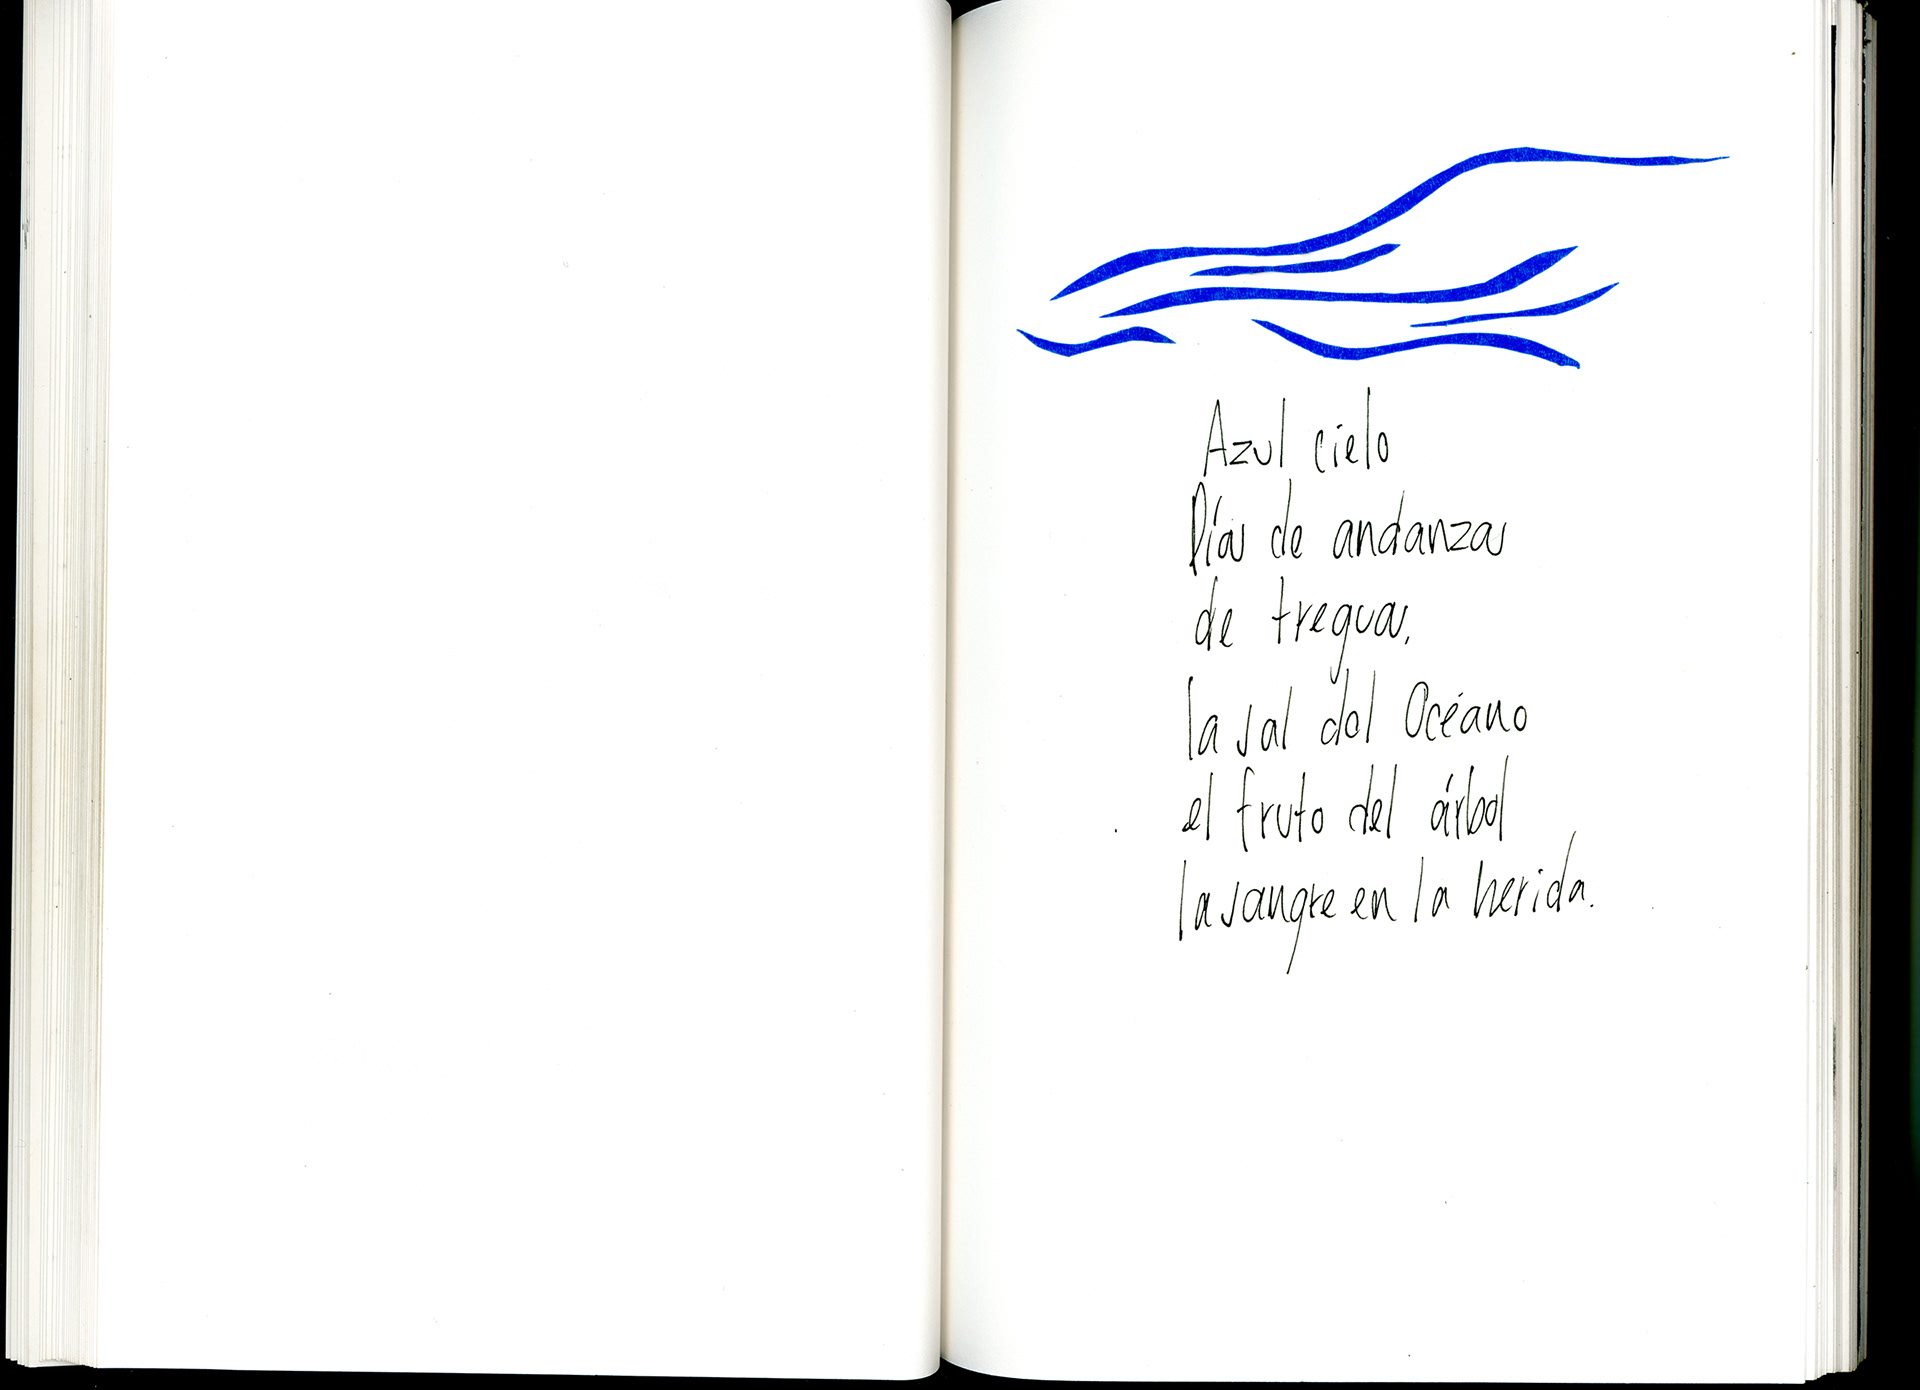 Azul cielo
Días de andanzas
de treguas,
la sal del Océano
el fruto del árbol
la sangre en la herida.